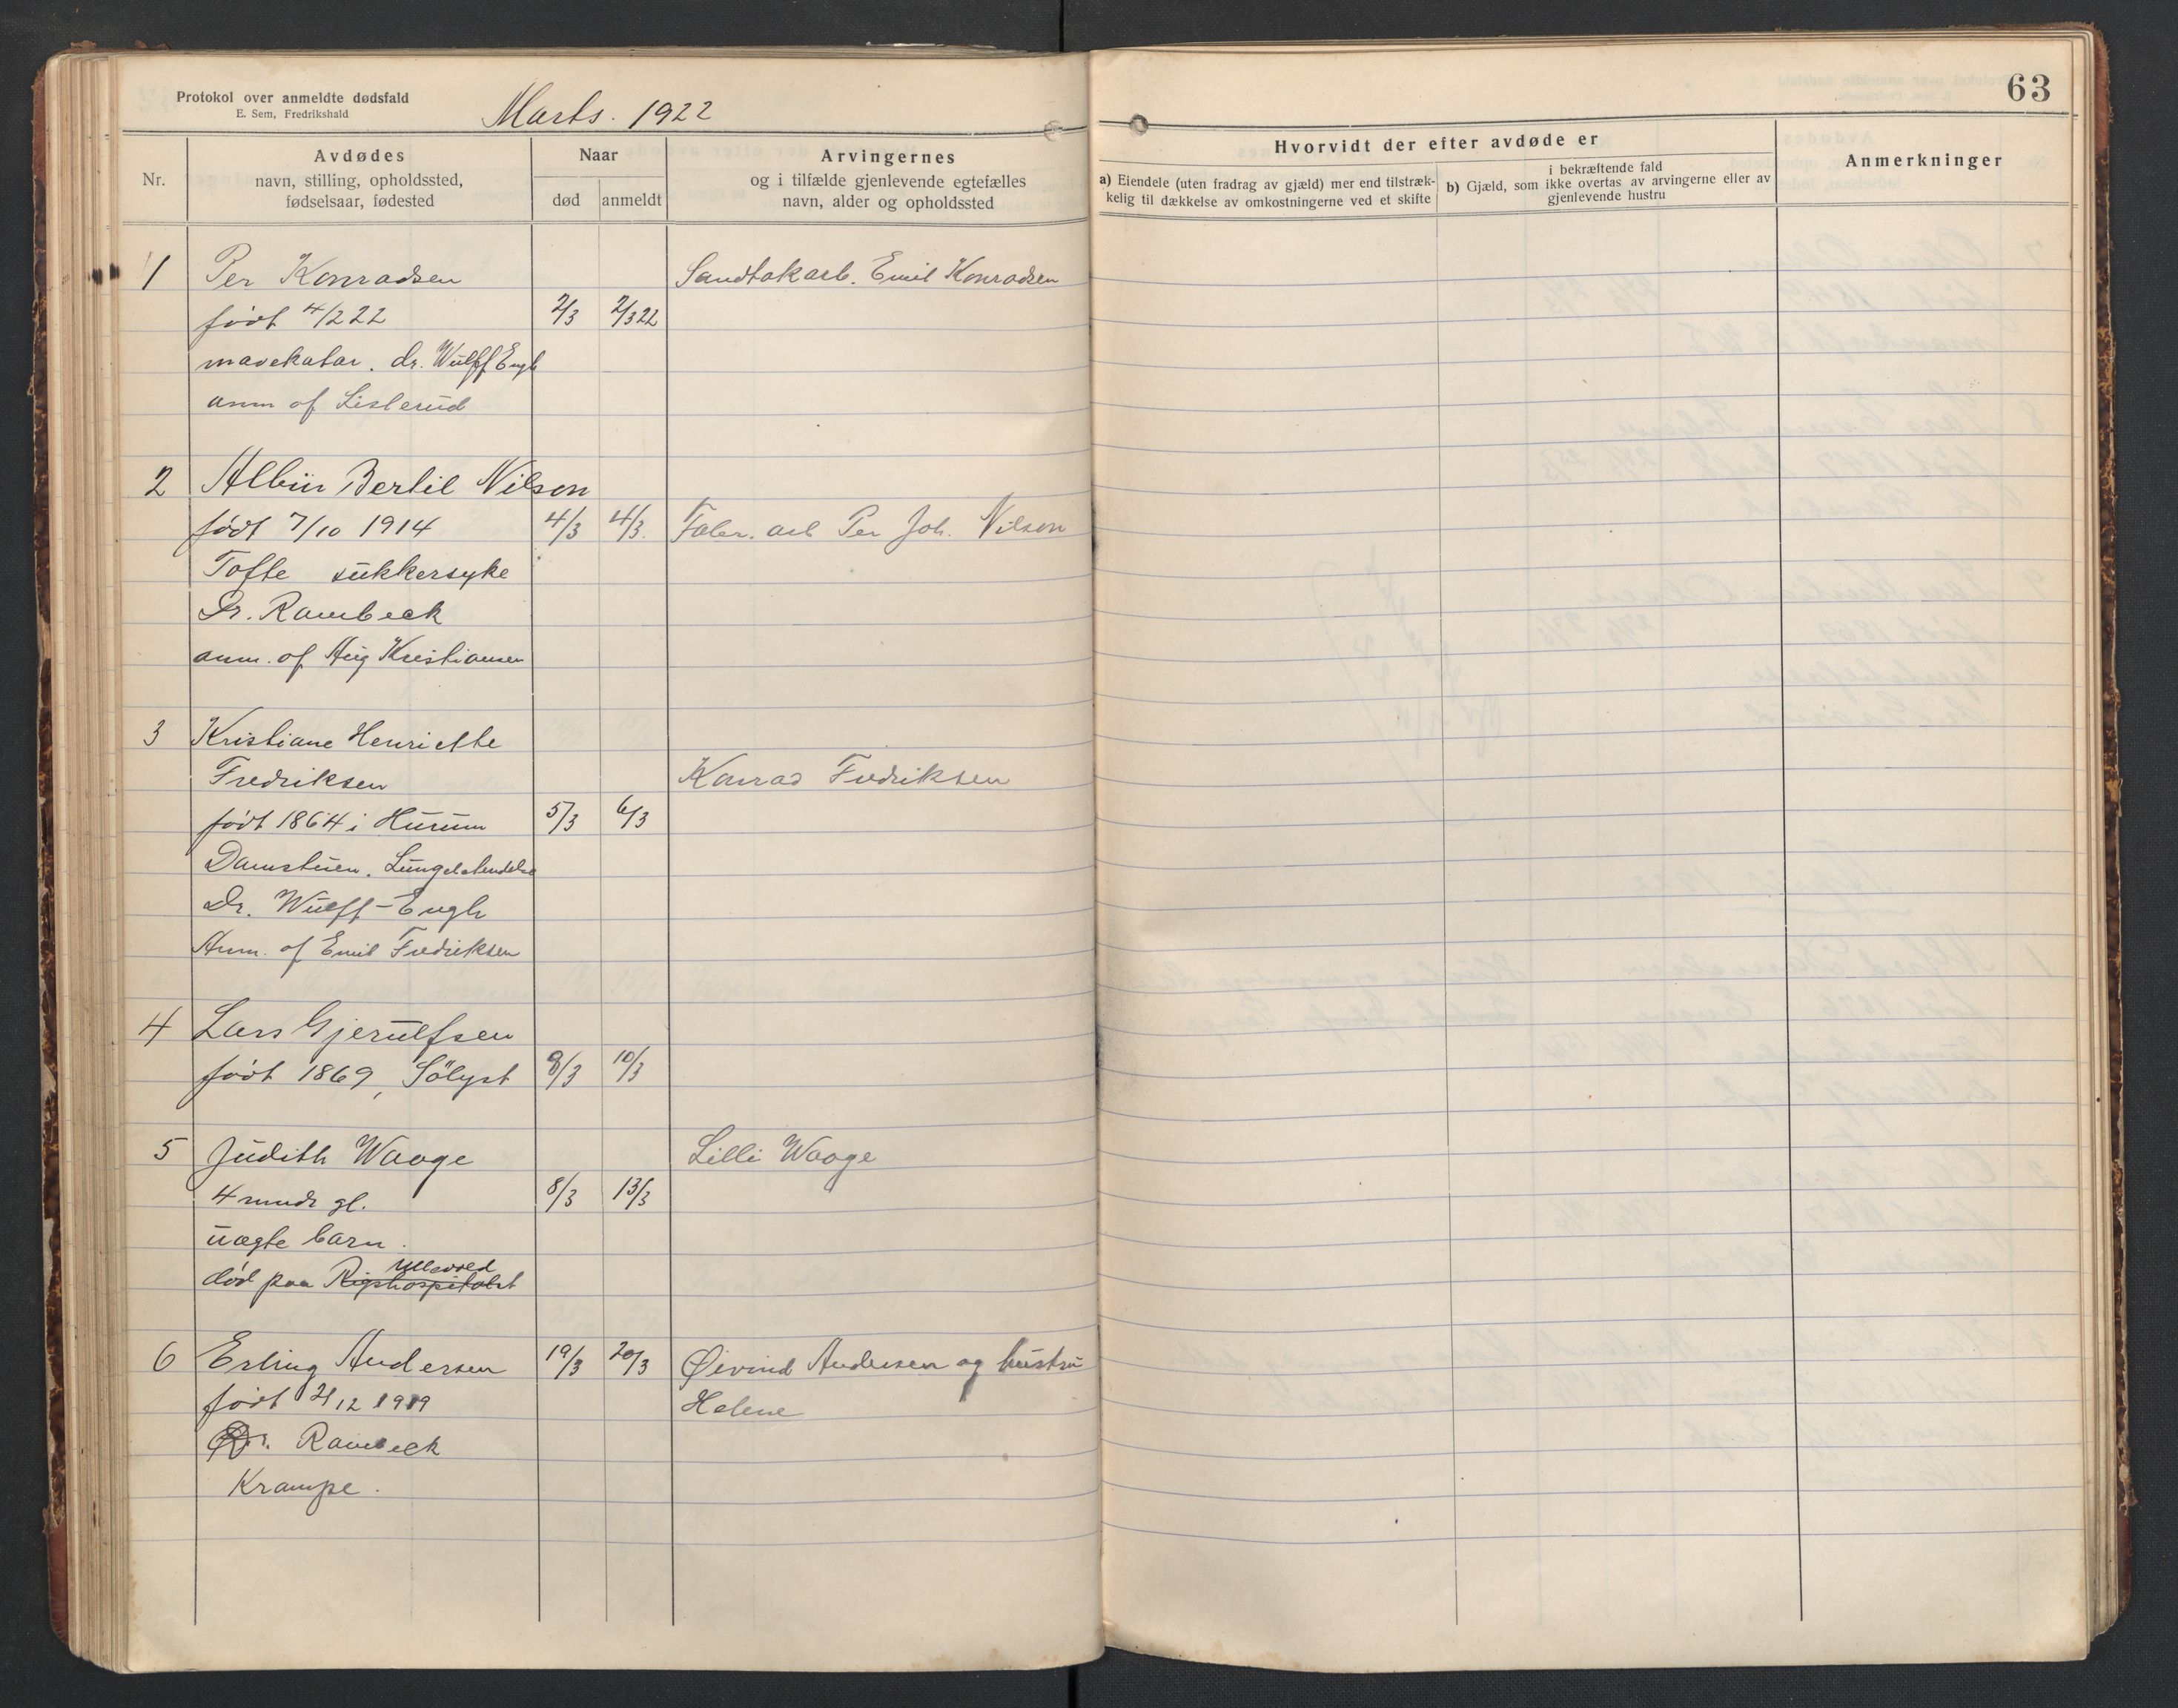 Protokol over anmeldte dødsfald
E. Sem, Fredrikshald
Marts. 1922
63
Nr.
Avdødes
navn, stilling, opholdssted,
fødselsaar, fødested
Naar
død
anmeldt
Arvingernes
og i tilfælde gjenlevende egtefælles
navn, alder og opholdssted
Hvorvidt der efter avdøde er
a) Eiendele (uten fradrag av gjæld) mer end tilstræk-
kelig til dækkelse av omkostningerne ved et skifte
i bekræftende fald
b) Gjæld, som ikke overtas av arvingerne eller av
gjenlevende hustru
Anmerkninger
1 Per Konradsen Sandtakarb. Emil Konradsen
født 4/2 22 2/3 2/3 22
mavekatar. dr. Wulff Engh
anm af Lislerud
2 Albin Bertil Nilson
født 7/10 1914 4/3 4/3. Fabr. arb Per Joh. Nilson
Tofte sukkersyke
Dr. Rambeck
anm. af Aug Kristiansen
3 Kristiane Henriette
Fredriksen Konrad Fredriksen
født 1864 i Hurum 5/3 6/3
Damstuen. Lungebetendelse
Dr. Wulff-Engh
Anm. af Emil Fredriksen
4 Lars Gjerulfsen
født 1869, Sölyst 8/3 10/3
5 Judith Waage Lilli Waage
4 mndr gl. 8/3 13/3
uægte barn.
Ullevold
död paa Rigshospitalet
6 Erling Andersen 19/3 20/3 Øivind Andersen og hustru
født 12 1919 Helene
Dr. Rambeck
Krampe.